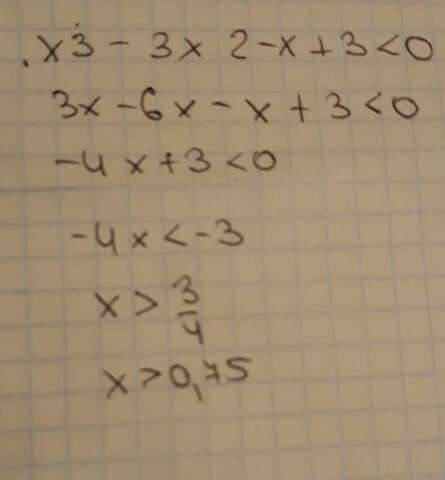 . x3 - 3x 2 - x + 3 < 0
3x - 6x - x + 3 < 0
-4x + 3 < 0
-4x < -3
x > 3/4
x > 0,75